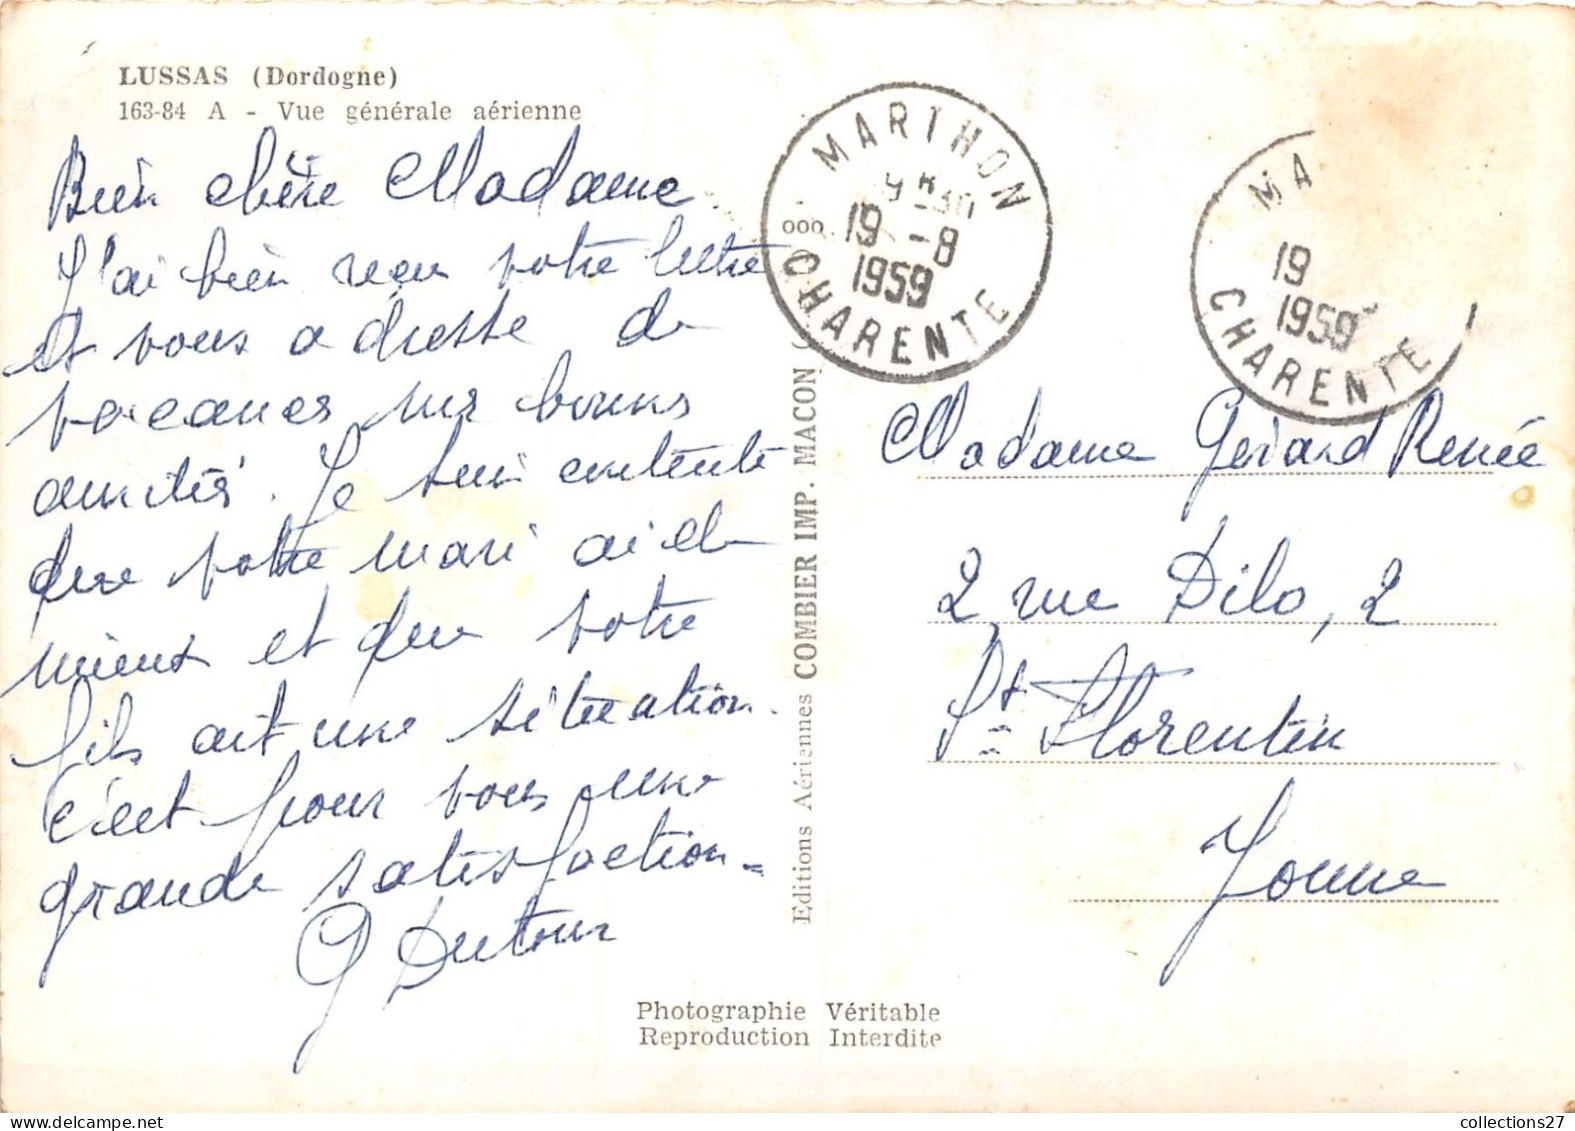 LUSSAS (Dordogne)
163-84 A - Vue générale aérienne
Bien chère Madame
J'ai bien reçu votre lettre
et vous adresse de
vacances mes bonnes
amitiés. Je suis contente
que votre mari aille
mieux et que votre
fils ait une situation.
c'est pour vous une
grande satisfaction -
G Dutour
MARTHON
9 H 30
19 - 8
1959
CHARENTE
MA
19
1959
CHARENTE
Madame Gérard Renée
2, rue Dilo, 2
St Florentin
Yonne
Editions Aériennes COMBIER IMP. MACON
Photographie Véritable
Reproduction Interdite
collections27